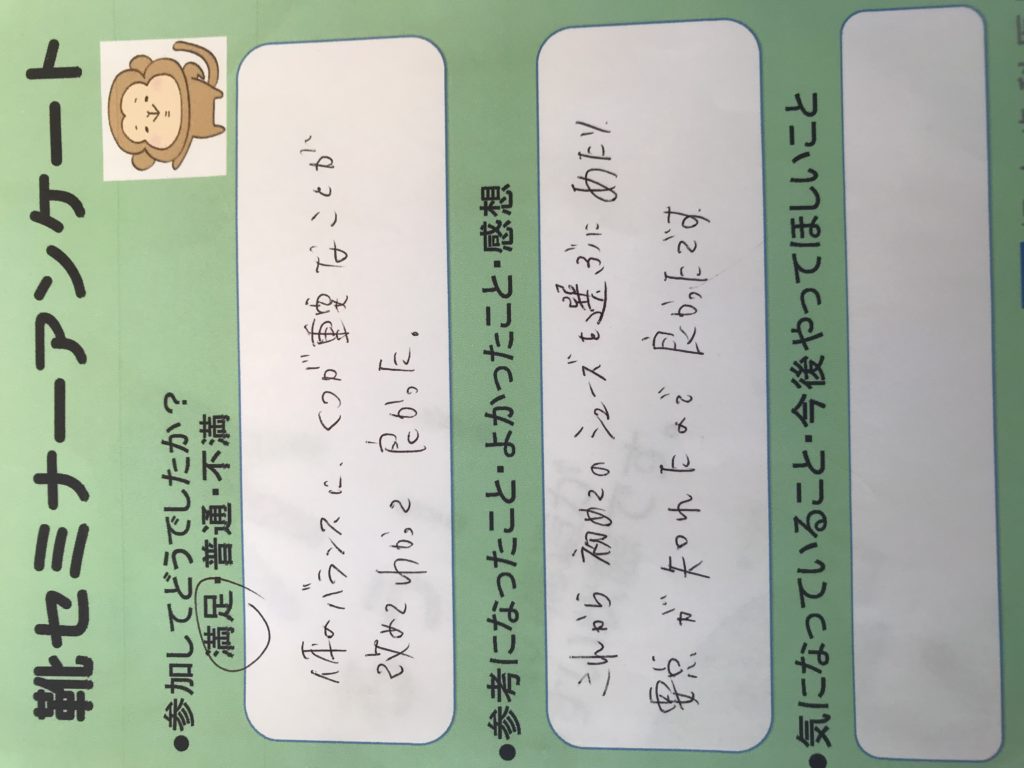 靴セミナーアンケート
●参加してどうでしたか？
満足・普通・不満
体のバランスに、くつが重要なことが
改めてわかって良かった。
●参考になったこと・よかったこと・感想
これから初めてのシューズを選ぶにあたり
要点が知れたので良かったです
●気になっていること・今後やってほしいこと